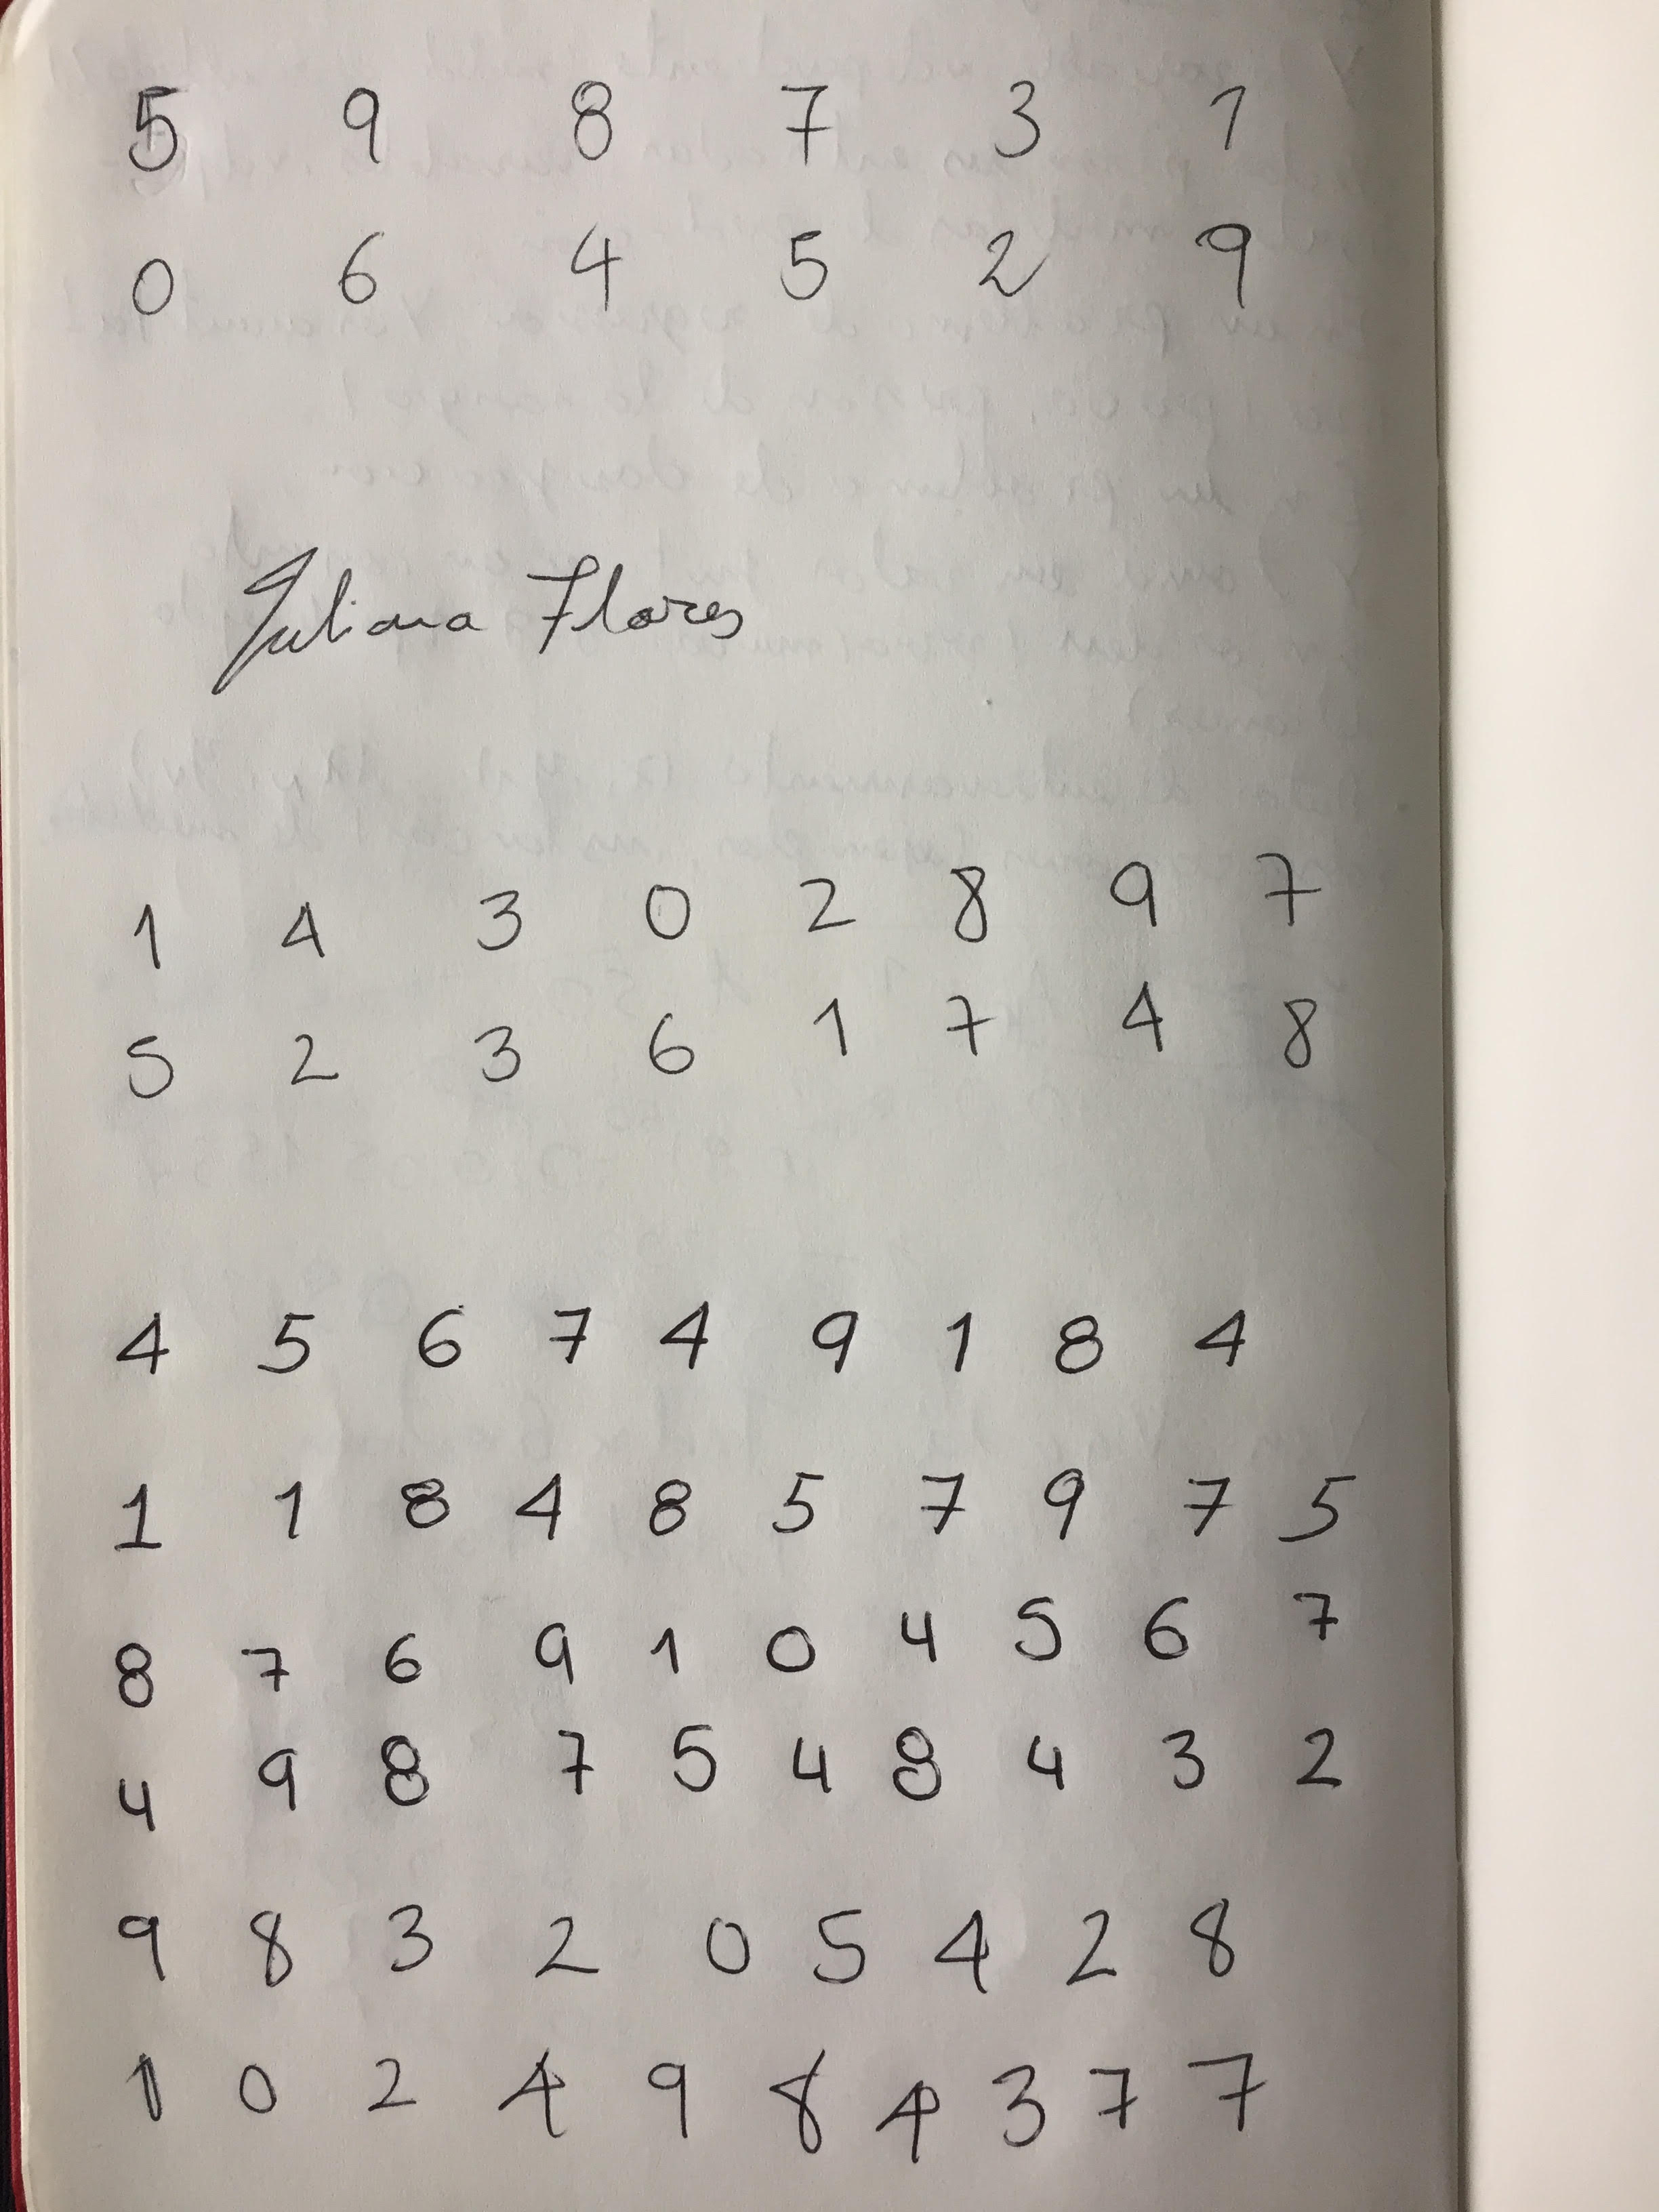 5 9 8 7 3 1
0 6 4 5 2 9
Juliana Flores
1 4 3 0 2 8 9 7
5 2 3 6 1 7 4 8
4 5 6 7 4 9 1 8 4
1 1 8 4 8 5 7 9 7 5
8 7 6 9 1 0 4 5 6 7
4 9 8 7 5 4 8 4 3 2
9 8 3 2 0 5 4 2 8
1 0 2 4 9 8 4 3 7 7